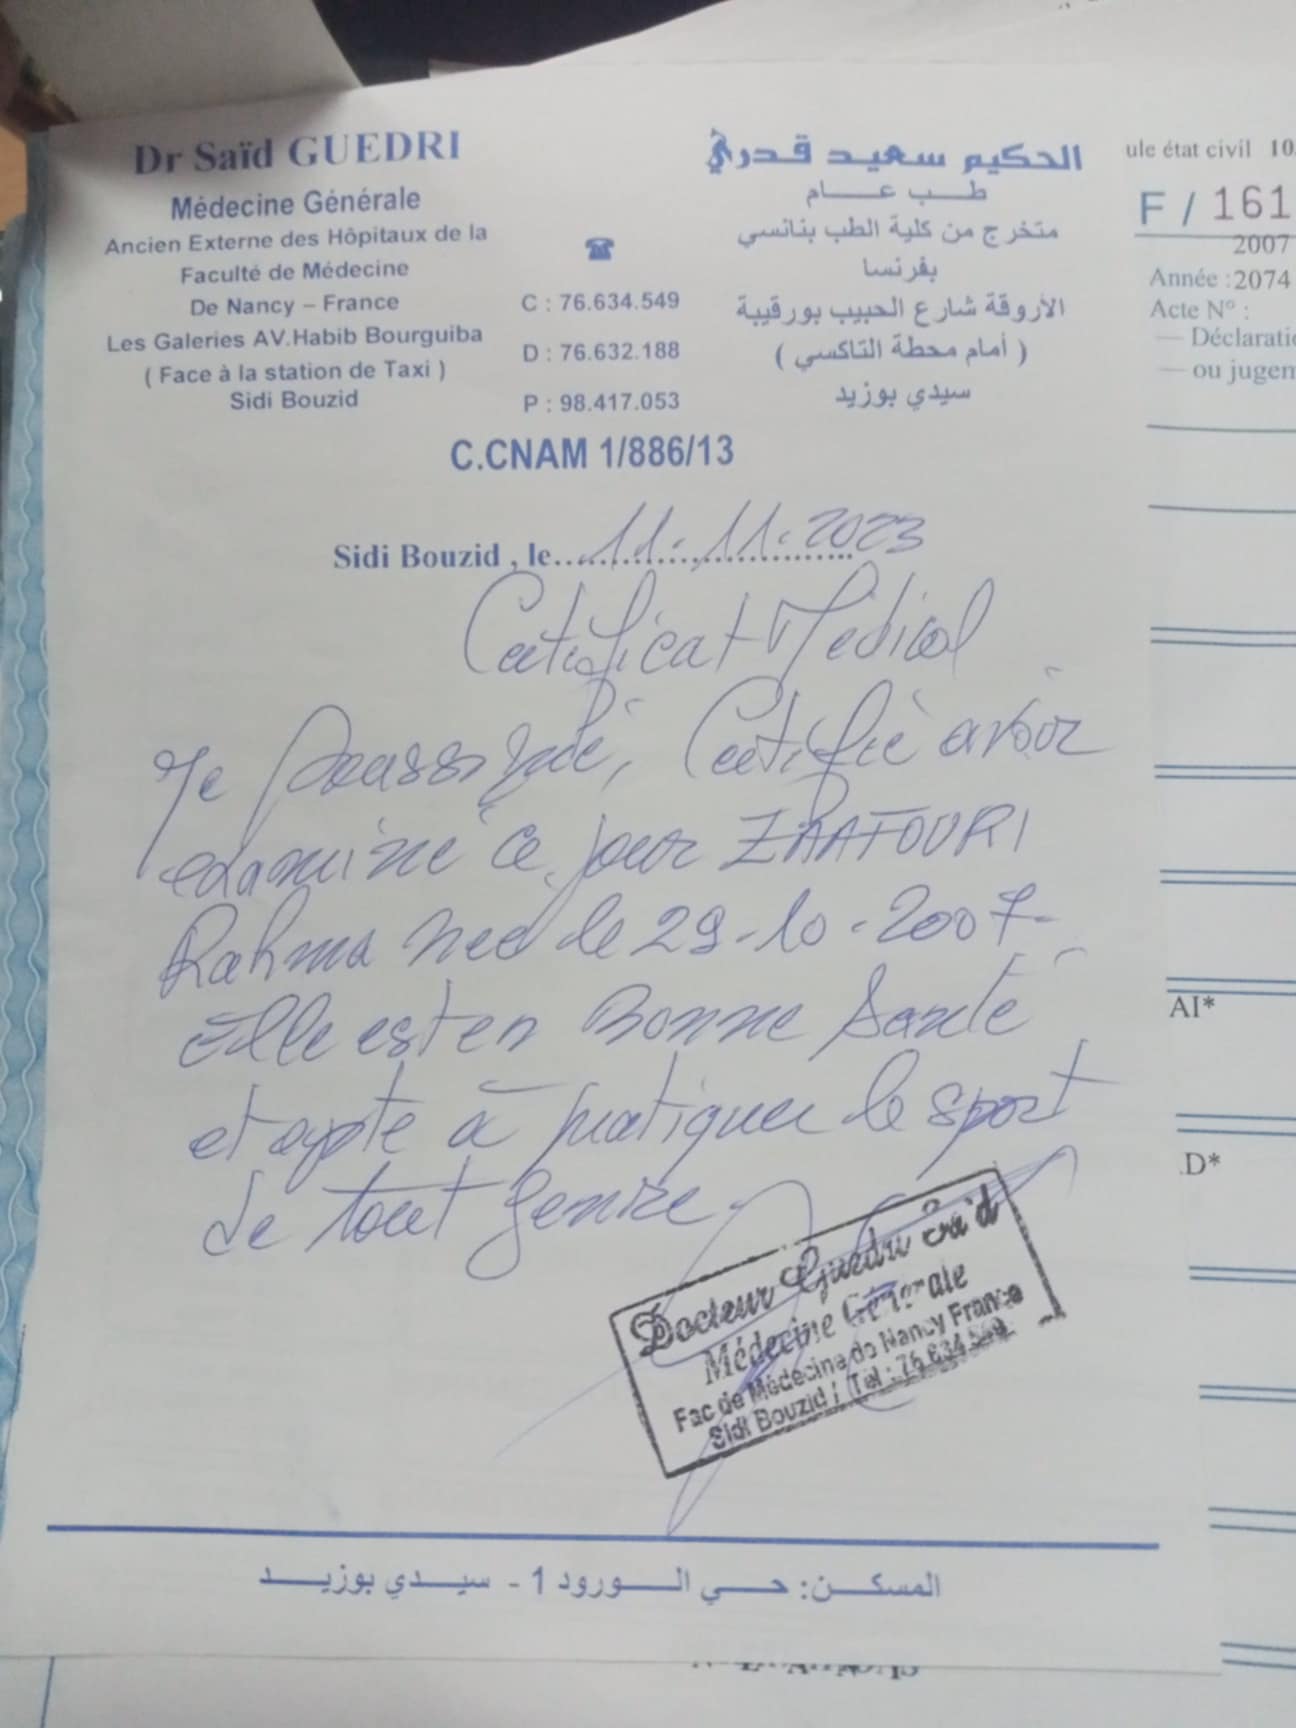 Dr Saïd GUEDRI
Médecine Générale
Ancien Externe des Hôpitaux de la
Faculté de Médecine
De Nancy – France
Les Galeries AV.Habib Bourguiba
( Face à la station de Taxi )
Sidi Bouzid
☎
C : 76.634.549
D : 76.632.188
P : 98.417.053
الحكيم سعيد قدري
طب عام
متخرج من كلية الطب بنانسي
بفرنسا
الأروقة شارع الحبيب بورقيبة
( أمام محطة التاكسي )
سيدي بوزيد
C.CNAM 1/886/13
Sidi Bouzid , le 11.11.2023
Certificat Medical
Je soussigné, Certifie avoir
examine ce jour ZAAFOURI
Rahma nee le 29-10-2007-
Elle est en Bonne Santé
et apte à pratiquer le sport
de tout genre
Docteur Guedri Saïd
Médecine Générale
Fac de Médecine de Nancy France
Sidi Bouzid / Tél : 76 634 549
المسكن: حي الورود 1 - سيدي بوزيد
ule état civil 10
F / 161
2007
Année : 2074
Acte N° :
— Déclarati
— ou jugem
AI*
D*